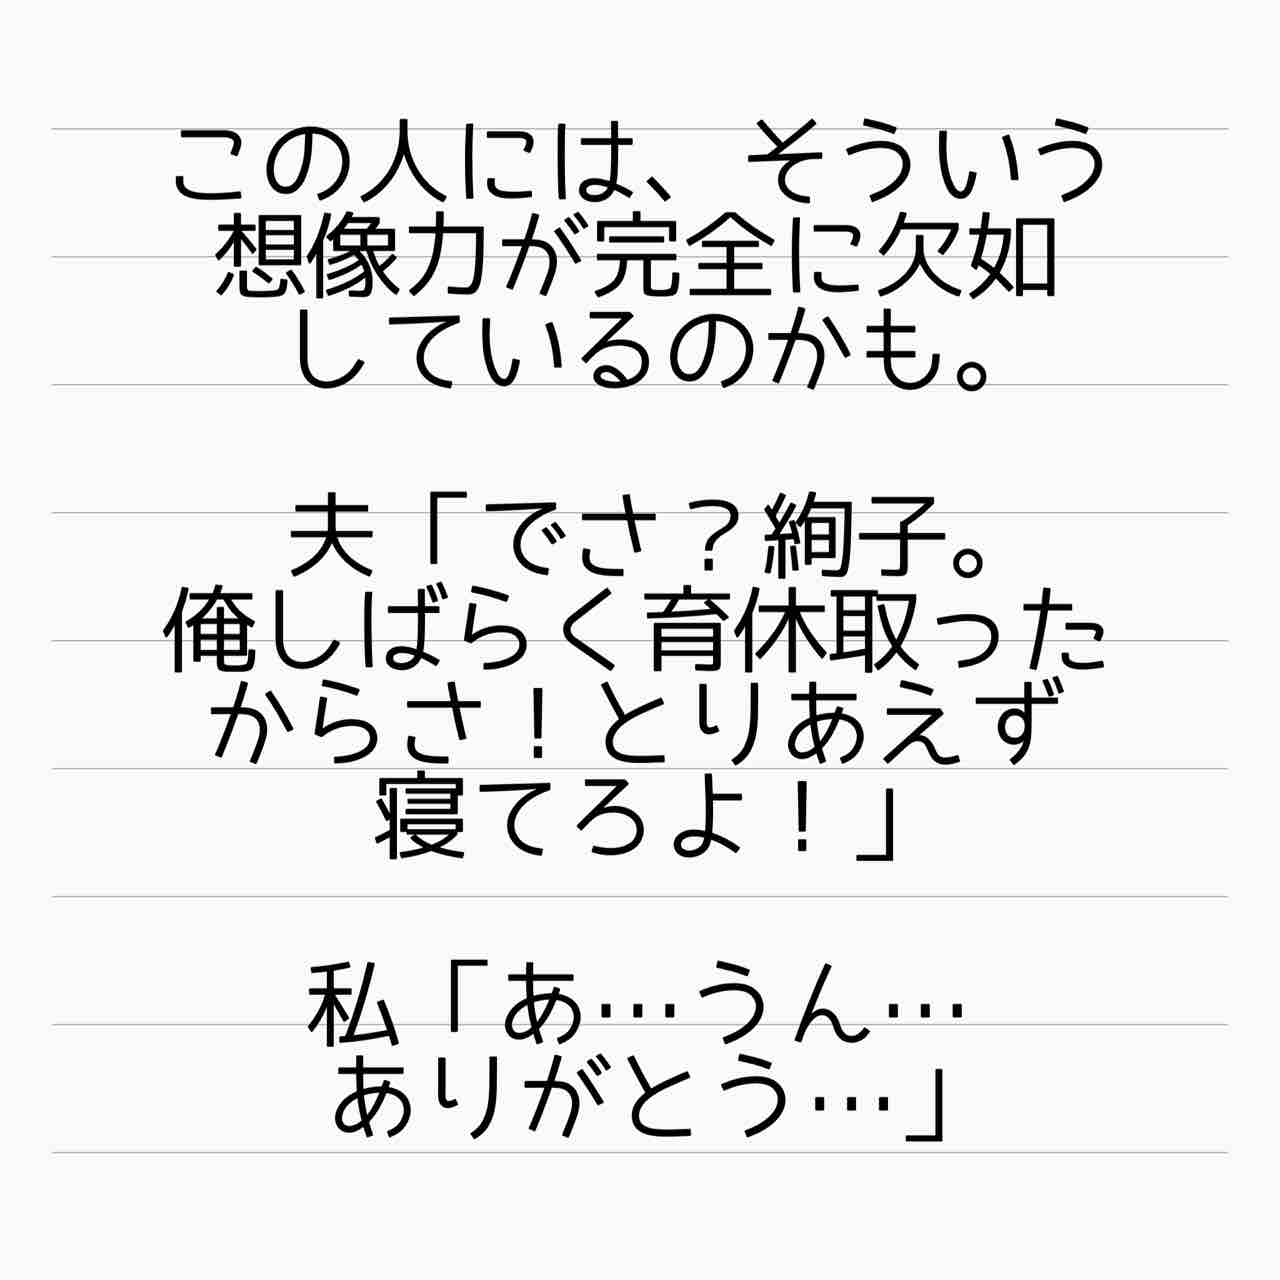 この人には、そういう
想像力が完全に欠如
しているのかも。
夫「でさ？絢子。
俺しばらく育休取った
からさ！とりあえず
寝てろよ！」
私「あ…うん…
ありがとう…」